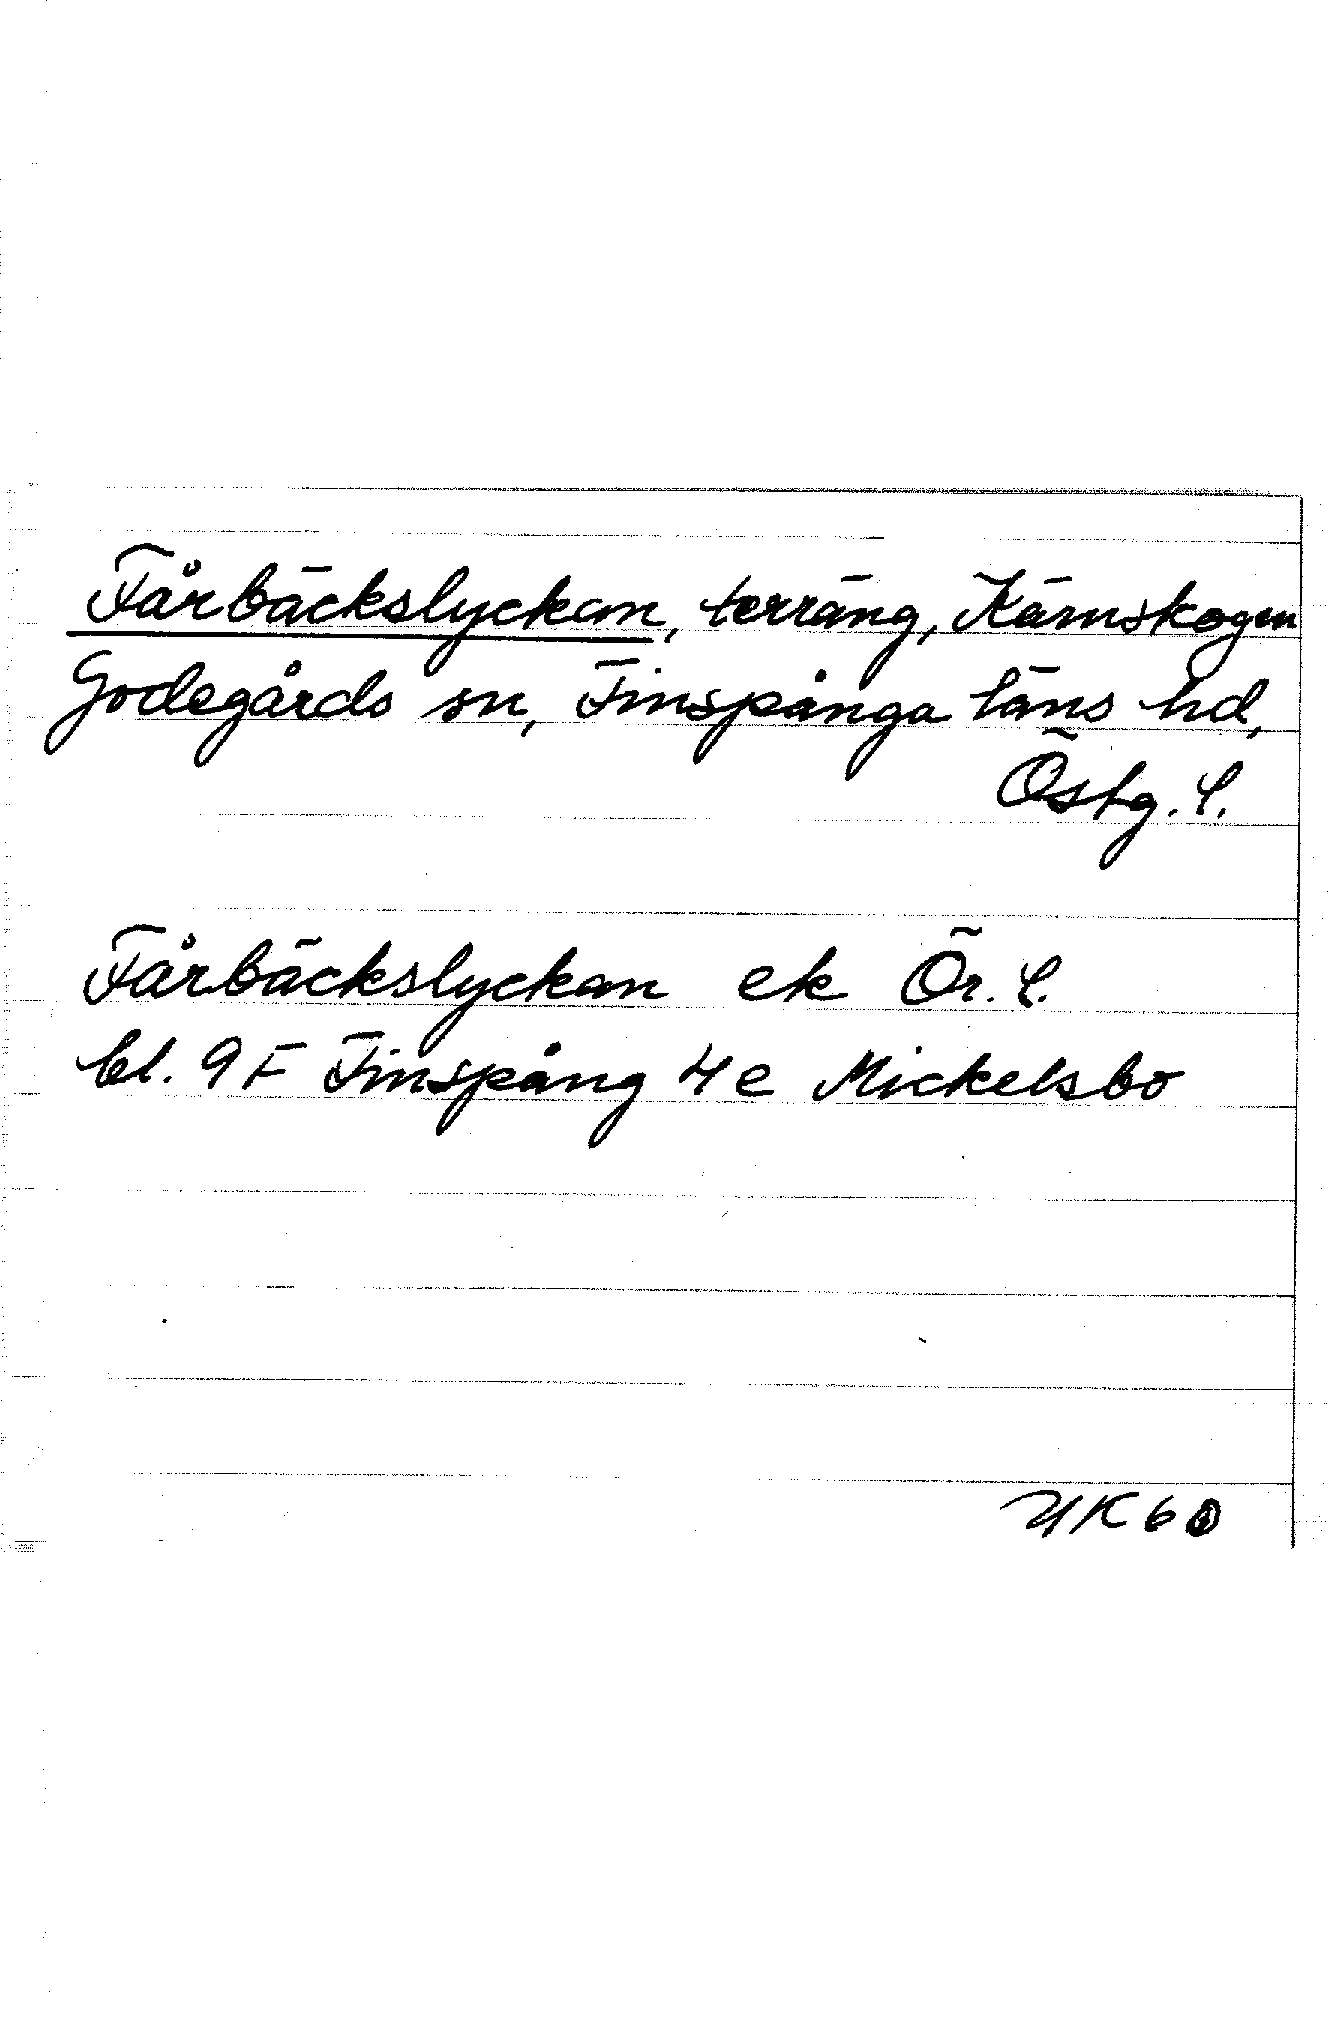 Fårbäckslyckan, terräng, Kärnskogen
Godegårds sn, Finspånga läns hd,
Östg. l.
Fårbäckslyckan ek Ör. l.
bl. 9 F Finspång 4 e Mickelsbo